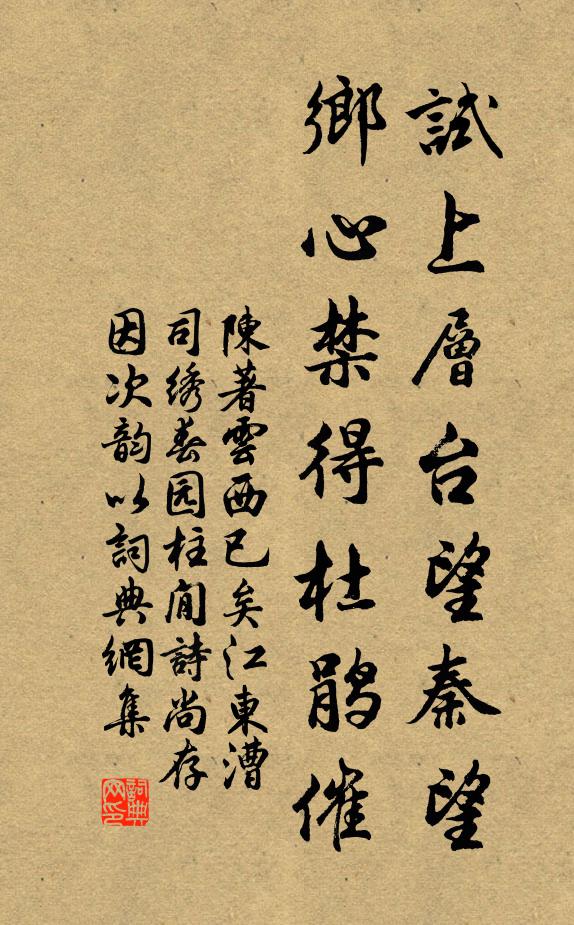 試上層台望秦望
鄉心禁得杜鹃催
陳著雲西已矣江東漕
司绣春园柱间詩尚存
因次韵以詞典網集
詞典网印